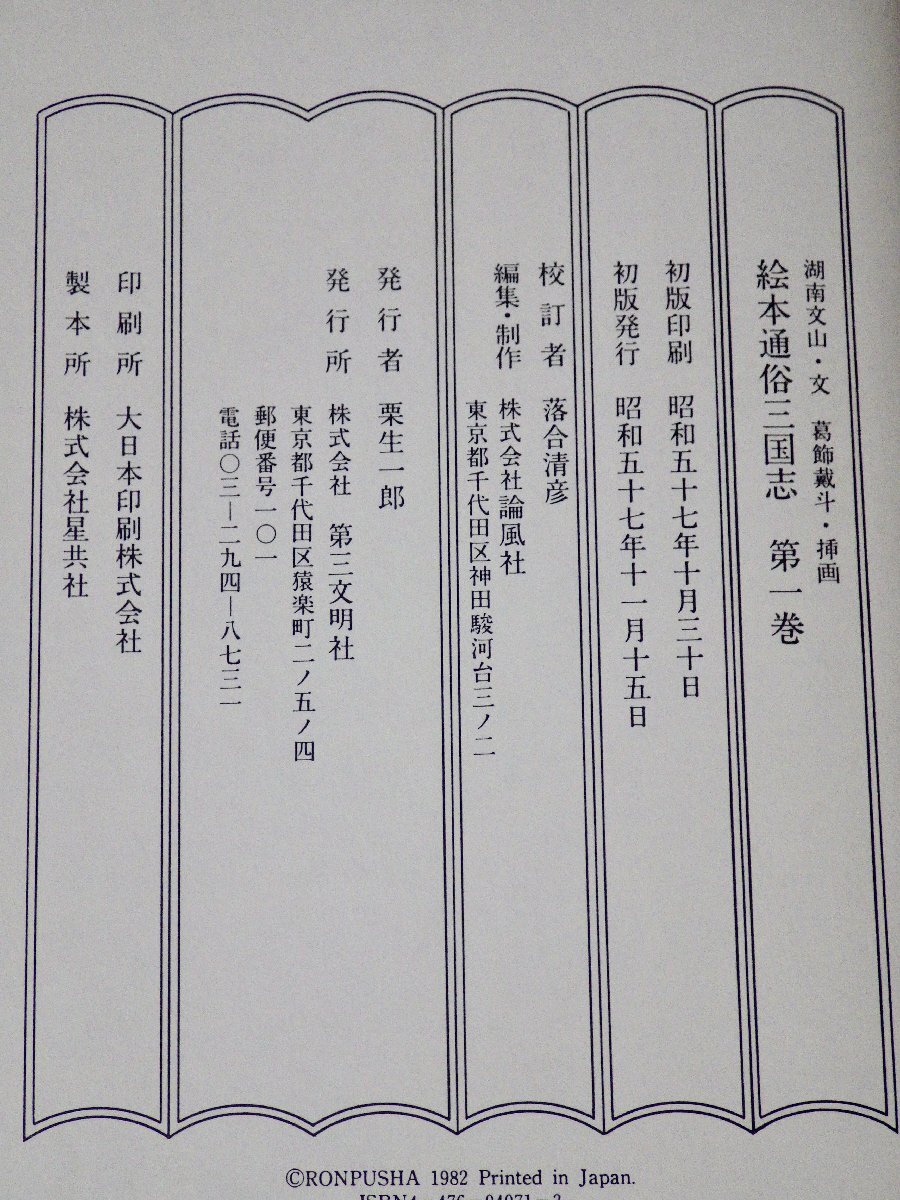 湖南文山・文　葛飾戴斗・挿画
絵本通俗三国志　第一巻
初版印刷　昭和五十七年十月三十日
初版発行　昭和五十七年十一月十五日
校訂者　落合清彦
編集・制作　株式会社論風社
東京都千代田区神田駿河台三ノ二
発行者　栗生一郎
発行所　株式会社　第三文明社
東京都千代田区猿楽町二ノ五ノ四
郵便番号一〇一
電話〇三―二九四―八七三一
印刷所　大日本印刷株式会社
製本所　株式会社星共社
©RONPUSHA 1982 Printed in Japan.